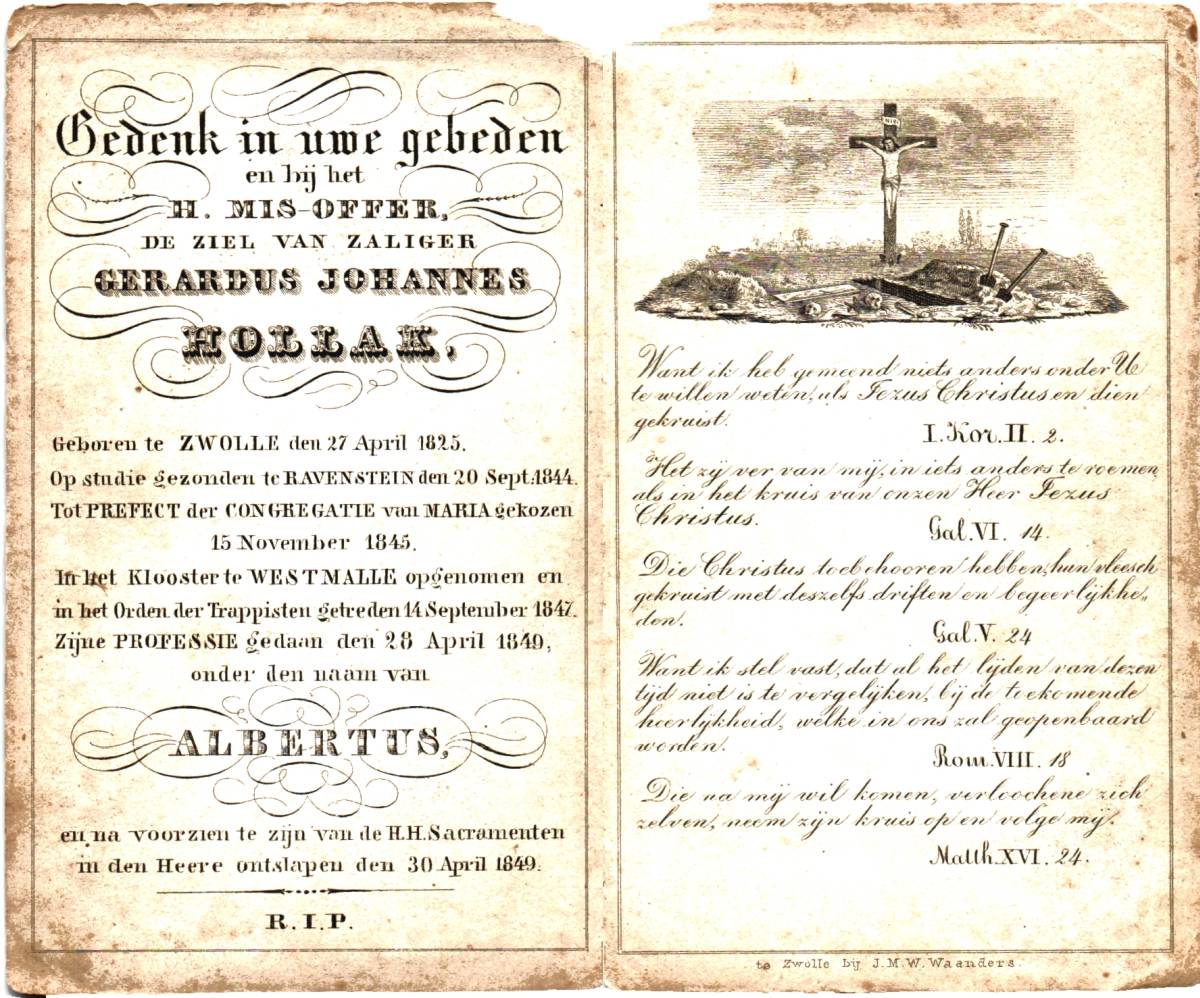 Gedenk in uwe gebeden
en bij het
H. MIS-OFFER,
DE ZIEL VAN ZALIGER
GERARDUS JOHANNES
HOLLAK,
Geboren te ZWOLLE den 27 April 1825.
Op studie gezonden te RAVENSTEIN den 20 Sept. 1844.
Tot PREFECT der CONGREGATIE van MARIA gekozen
15 November 1845.
In het Klooster te WESTMALLE opgenomen en
in het Orden der Trappisten getreden 14 September 1847.
Zijne PROFESSIE gedaan den 28 April 1849,
onder den naam van
ALBERTUS,
en na voorzien te zijn van de H.H. Sacramenten
in den Heere ontslapen den 30 April 1849.
R.I.P.
INRI
Want ik heb gemeend niets anders onder U
te willen weten, als Jezus Christus en dien
gekruist.
I. Kor. II. 2.
Het zij ver van mij, in iets anders te roemen,
als in het kruis van onzen Heer Jezus
Christus.
Gal. VI. 14.
Die Christus toebehooren hebben, hun vleesch
gekruist met deszelfs driften en begeerlijkhe„
den.
Gal. V. 24
Want ik stel vast, dat al het lijden van dezen
tijd niet is te vergelijken, bij de toekomende
heerlijkheid, welke in ons zal geopenbaard
worden.
Rom. VIII. 18
Die na mij wil komen, verloochene zich
zelven, neem zijn kruis op en volge mij.
Matth. XVI. 24.
te Zwolle bij J.M.W. Waanders.